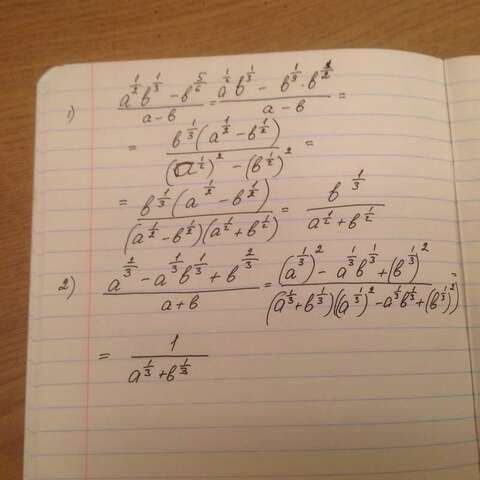 1) (a^{1/2}b^{1/3} - b^{5/6})/(a-b) = (a^{1/2}b^{1/3} - b^{1/3}·b^{1/2})/(a-b) =
= (b^{1/3}(a^{1/2} - b^{1/2}))/((a^{1/2})^2 - (b^{1/2})^2) =
= (b^{1/3}(a^{1/2} - b^{1/2}))/((a^{1/2} - b^{1/2})(a^{1/2} + b^{1/2})) = b^{1/3}/(a^{1/2} + b^{1/2})
2) (a^{2/3} - a^{1/3}b^{1/3} + b^{2/3})/(a+b) = ((a^{1/3})^2 - a^{1/3}b^{1/3} + (b^{1/3})^2)/((a^{1/3} + b^{1/3})((a^{1/3})^2 - a^{1/3}b^{1/3} + (b^{1/3})^2)) =
= 1/(a^{1/3} + b^{1/3})